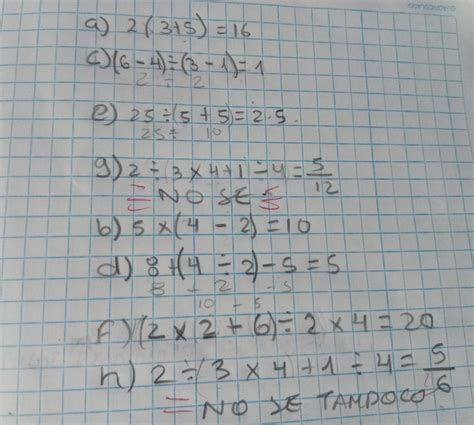 a) 2(3+5)=16
c)(6-4)÷(3-1)=1
2 ÷ 2
e) 25÷(5+5)=2.5.
25÷ 10
g) 2÷3×4+1÷4=5/12
= NO SE =
b) 5×(4-2)=10
d) 8+(4÷2)-5=5
8 - 2 -5
10 - 5
f) (2×2+6)÷2×4=20
h) 2÷(3×4+1÷4=5/6
= NO SE TAMPOCO